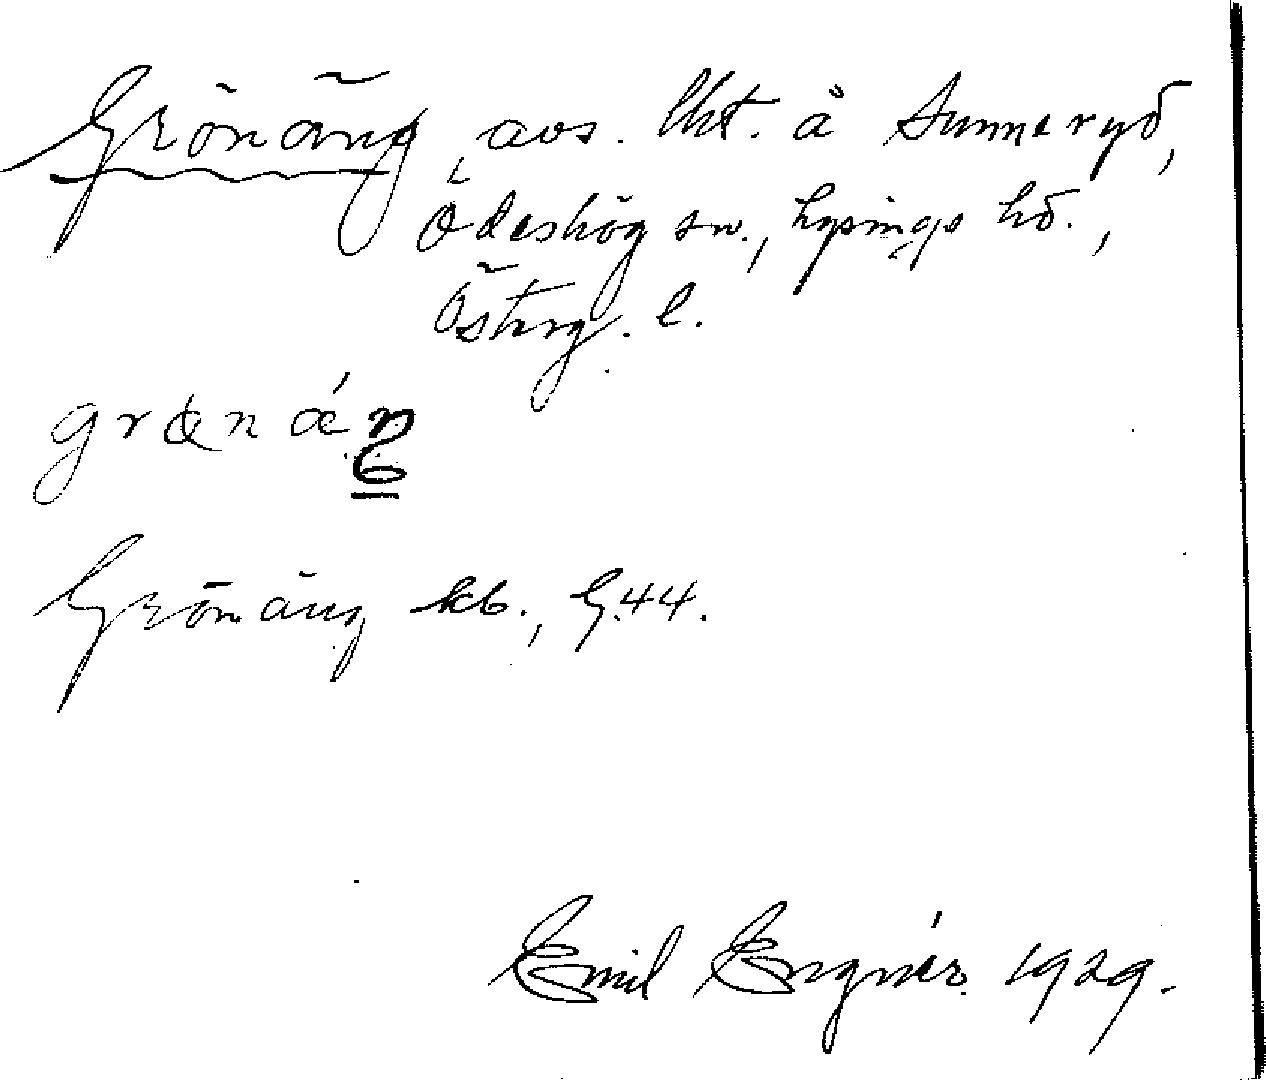 Grönäng, avs. lht. å Sunneryd,
Ödeshög sn., Lysings hd.,
Östrg. l.
Grönäng kb., G.44.
Emil 1929.